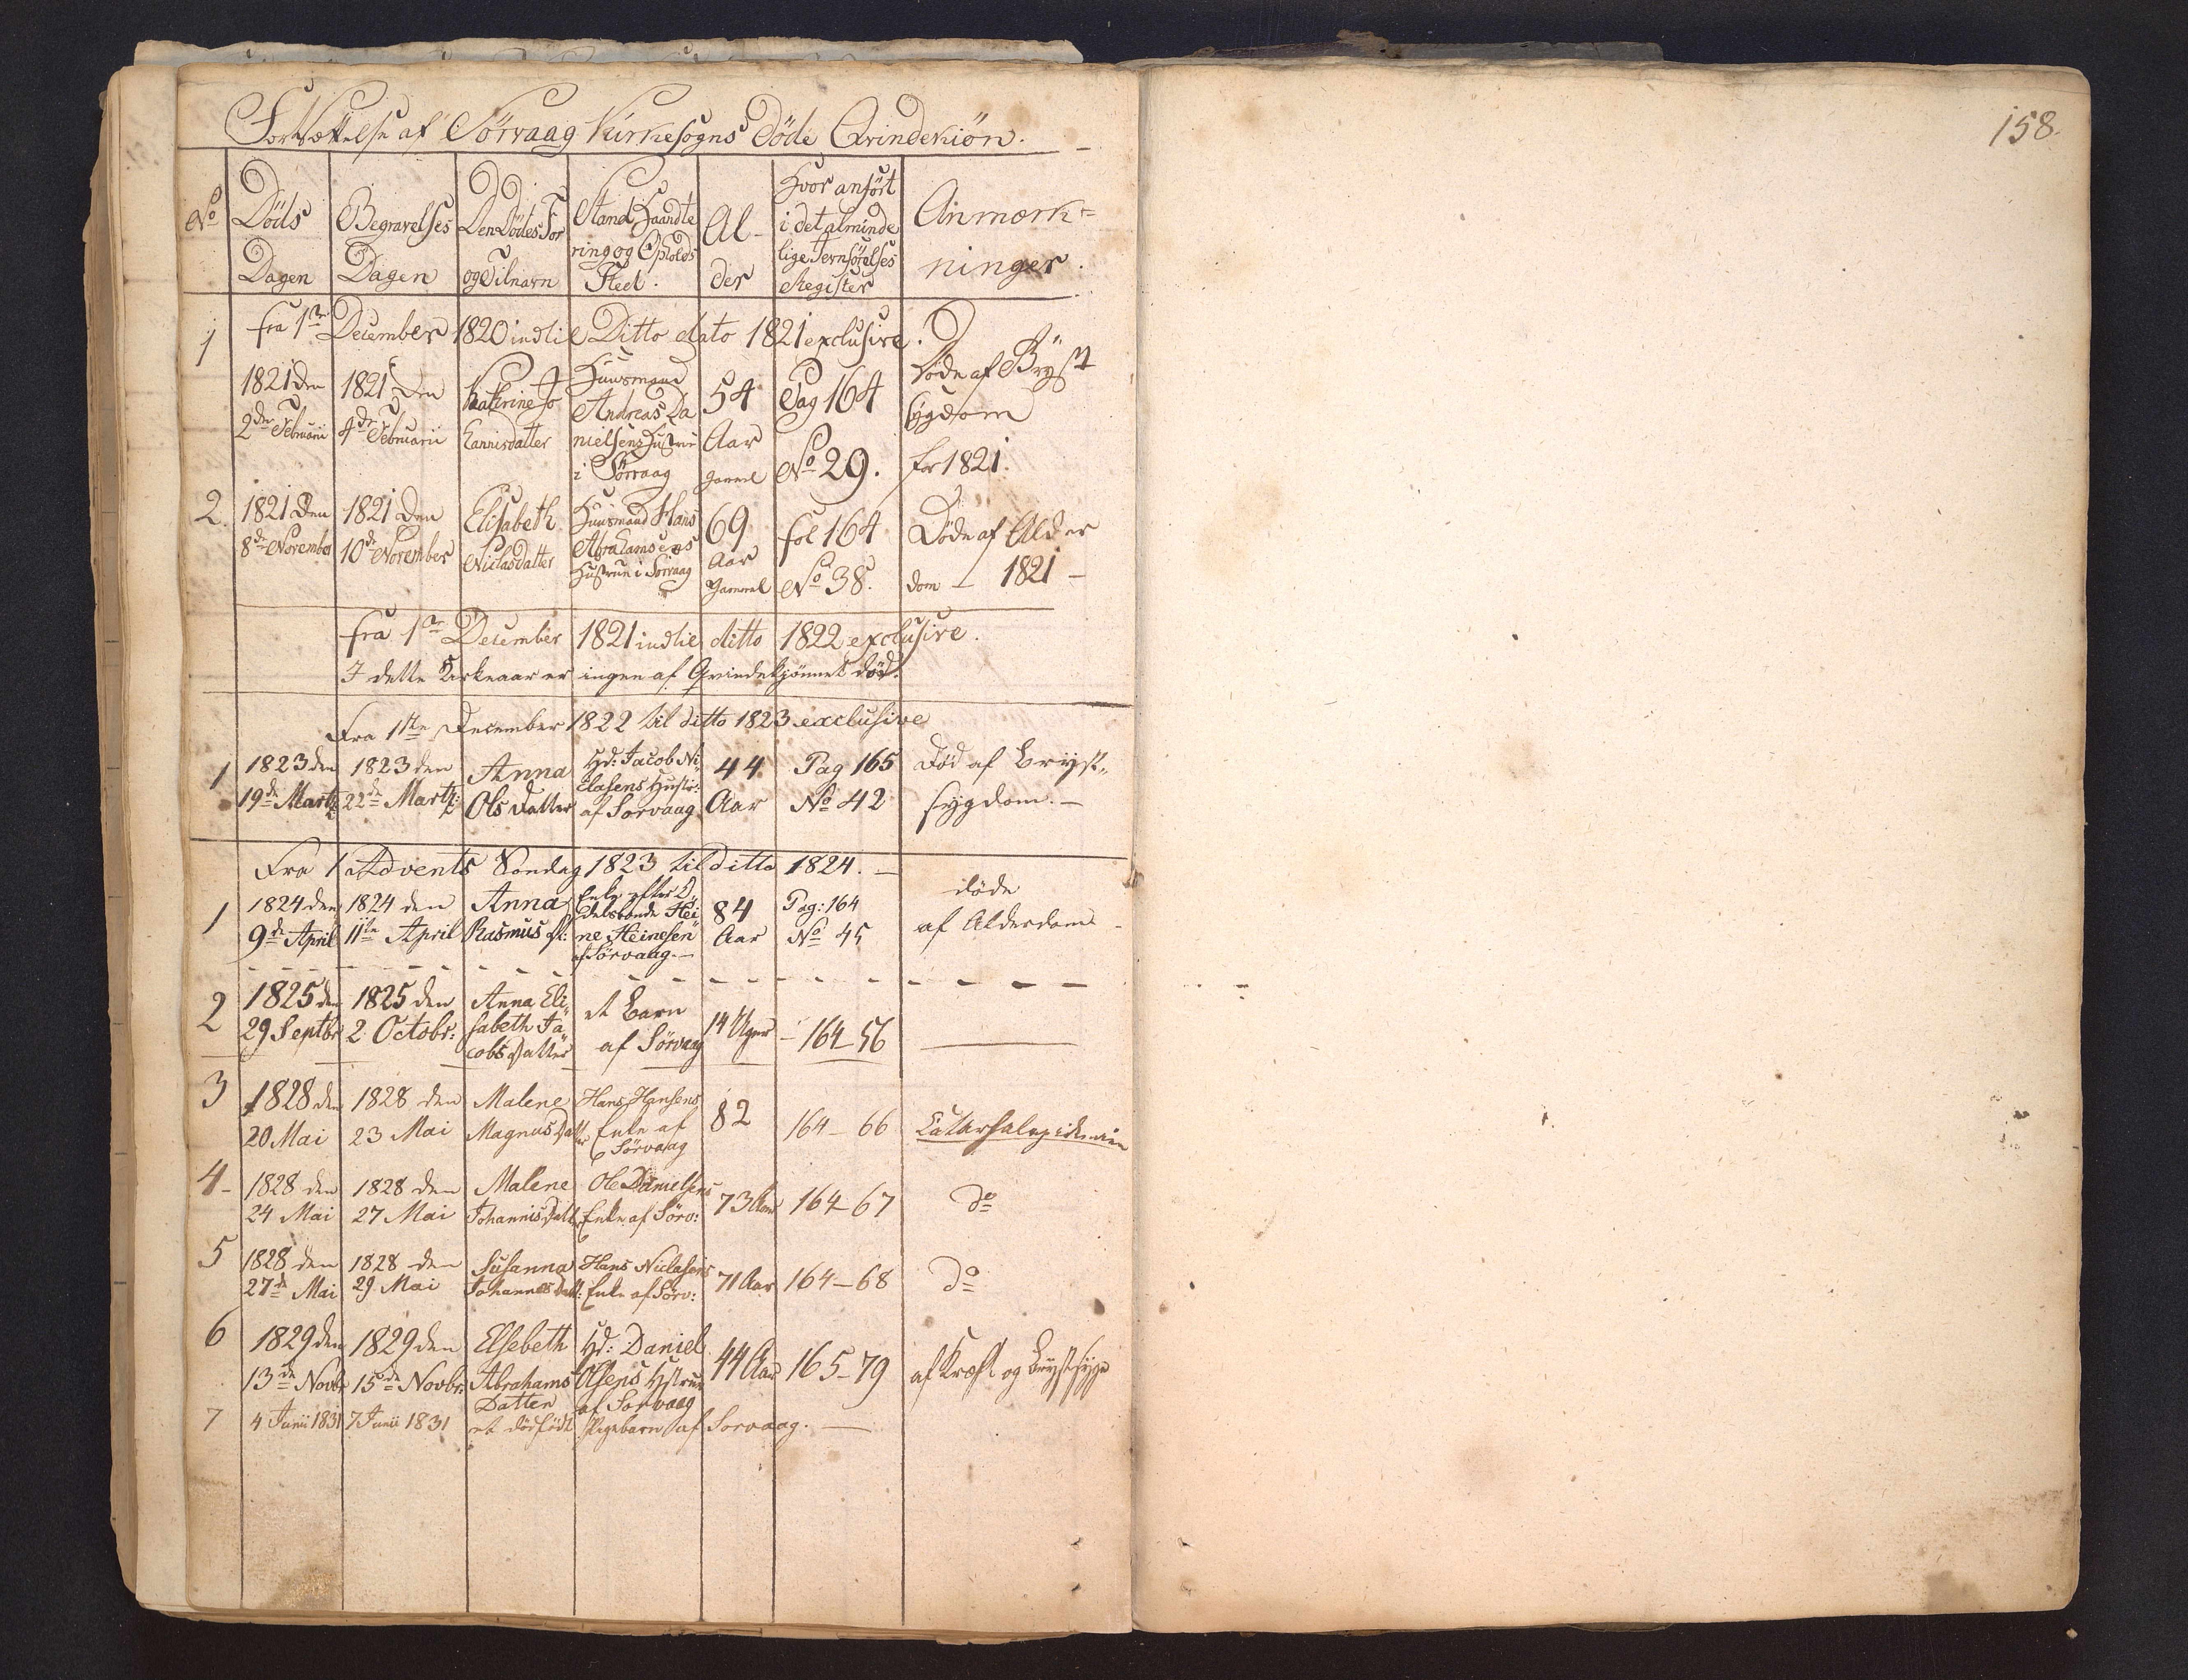 Fortsættelse af Sörvaag Kirkesogns Døde Qvindekiön.
No | Döds Dagen | Begravelses Dagen | Den Dödes For og Tilnavn | Stand Haandtering og Opholds Sted. | Alder | Hvor anført i det almindelige Jevnförelses Register | Anmærkninger.
fra 1ste December 1820 indtil Ditto dato 1821 exclusive.
1 | 1821 den 2den Februarii | 1821 den 4de Februarii | Kathrine Johannisdatter | Huusmand Andreas Danielsens Hustrue i Sörvaag | 54 Aar gammel | Pag 164 No 29. | Døde af Bryst sygdom for 1821.
2. | 1821 den 8de November | 1821 den 10de November | Elisabeth Niclasdatter | Huusmand Hans Abrahamsens Hustrue i Sörvaag | 69 Aar Gammel | fol 164 No 38. | Døde af Alderdom – 1821 –
fra 1ste December 1821 indtil ditto 1822 exclusive.
I dette Kirkeaar er ingen af Qvindekjönnet død.
Fra 1ste December 1822 til ditto 1823 exclusive
1 | 1823 den 19de Martz | 1823 den 22de Martz | Anna Ols Datter | Hd: Jacob Niclasens Hustr: af Sorvaag | 44 Aar | Pag 165 No 42 | død af Bryst„sygdom. –
Fra 1 Advents Søndag 1823 til ditto 1824. –
1 | 1824 den 9de April | 1824 den 11te April | Anna Rasmus D: | Enke efter Odelsbonde Heine Heinesen af Sörvaag. – | 84 Aar | Pag: 164 No 45 | døde af Alderdom
2 | 1825 den 29 Septbr | 1825 den 2 Octobr: | Anna Elisabeth Jacobs Datter | et Barn af Sörvaag | 14 Uger | – 164–56 | ——
3 | 1828 den 20 Mai | 1828 den 23 Mai | Malene Magnus Datter | Hans Hansens Enke af Sörvaag | 82 | 164–66 | Catarhalepidemien
4– | 1828 den 24 Mai | 1828 den 27 Mai | Malene Johannis Datt | Ole Danielsens Enke af Sörv: | 73 Aar | 164–67 | do
5 | 1828 den 27de Mai | 1828 den 29 Mai | Susanna Johannes Datt: | Hans Niclasens Enke af Sörv: | 71 Aar | 164–68 | do
6 | 1829 den 13de Novbr | 1829 den 15de Novbr: | Elsebeth Abrahams Datter | Hd: Daniel Olsens Hstrue af Sorvaag | 44 Aar | 165–79 | af Kræft og Brystsyge
7 | 4 Junii 1831 | 7 Junii 1831 | et dödfödt Pigebarn af Sorvaag. –
158.